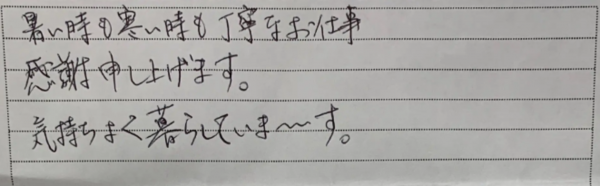 暑い時も寒い時も丁寧なお仕事
感謝申し上げます。
気持ちよく暮らしていま〜す。